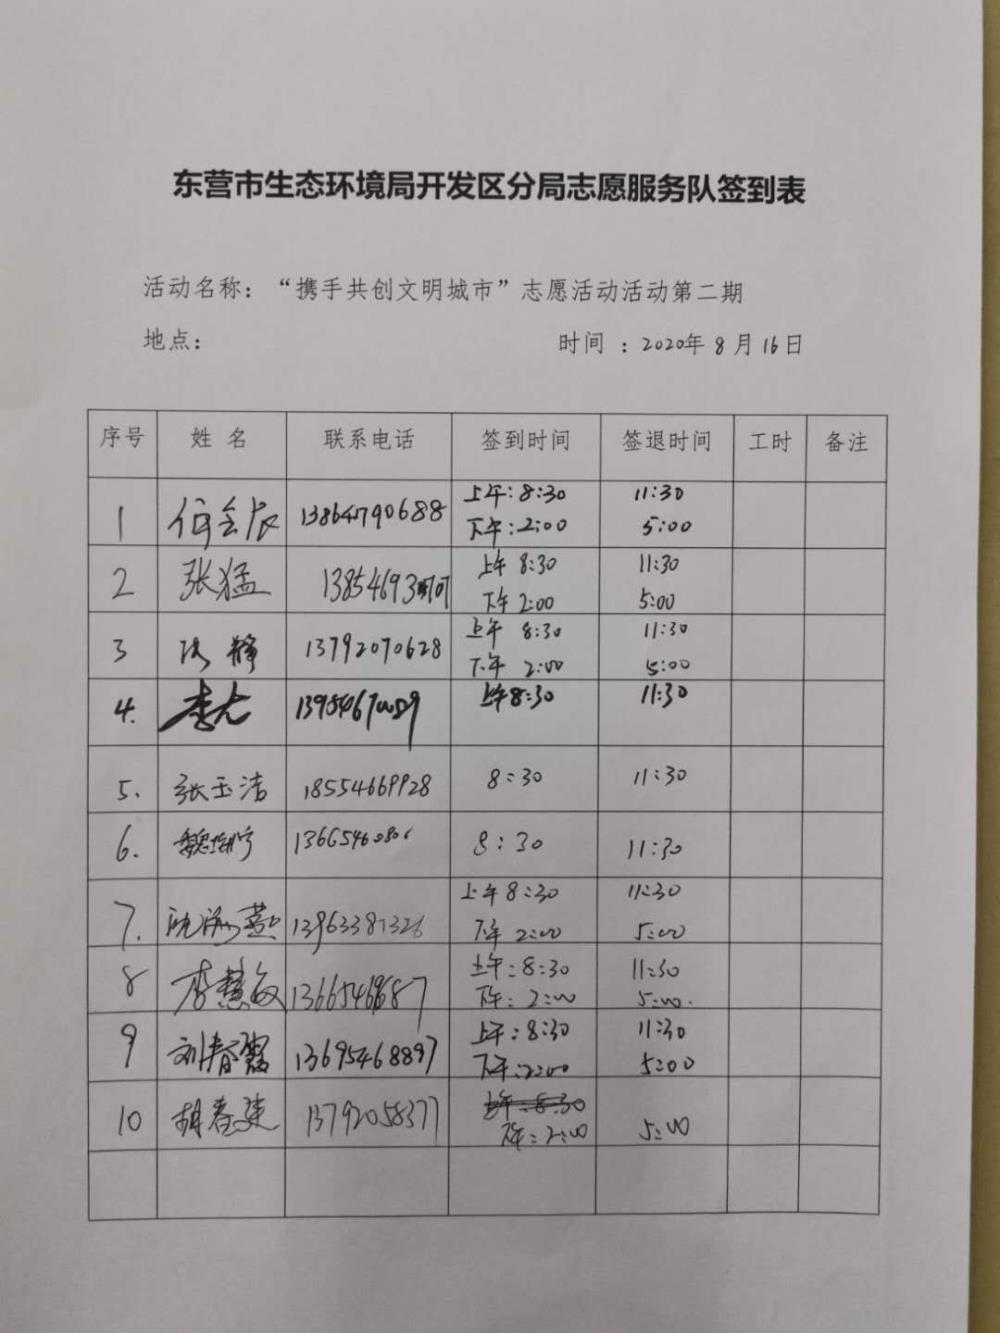 东营市生态环境局开发区分局志愿服务队签到表
活动名称：“携手共创文明城市”志愿活动活动第二期
地点： 时间 ：2020年8月16日
序号 姓名 联系电话 签到时间 签退时间 工时 备注
1 13864790688 上午：8:30 11:30
下午：2:00 5:00
2 张猛 上午 8:30 11:30
下午 2:00 5:00
3 静 13792070628 上午 8:30 11:30
下午 2:00 5:00
4. 上午8:30 11:30
5. 张玉洁 18554669928 8:30 11:30
6. 魏 13665460806 8:30 11:30
7. 沈海燕 13963381326 上午8:30 11:30
下午 2:00 5:00
8 李慧敏 上午：8:30 11:30
下午：2:00 5:00.
9 刘春霞 13695468897 上午：8:30 11:30
下午：2:00 5:00
10 胡春建 13792058377 上午：8:30
下午：2:00 5:00